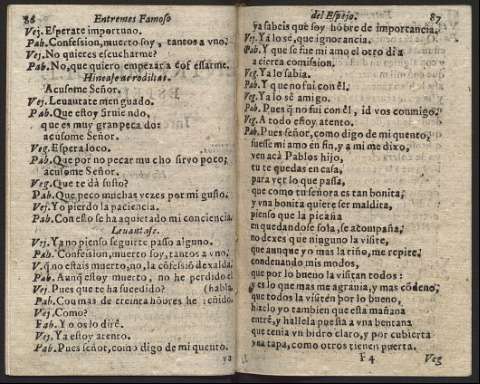 86 Entremes Famoso
Vej. Esperate importuno.
Pab. Confession, muerto soy, tantos a vno.
Vej. No quieres escucharme?
Pab. No, que quiero empezar a cõfessarme.
Hincase de rodillas.
Acusome Señor.
Vej. Leuantate menguado.
Pab. Que estoy siruiendo,
que es muy gran pecado:
acusome Señor.
Veg. Espera loco.
Pab. Que por no pecar mucho siruo poco;
acusome Señor.
Veg. Que te dà susto?
Pab. Que peco muchas vezes por mi gusto.
Vej. Yo pierdo la paciencia.
Pab. Con esso se ha aquietado mi conciencia.
Leuantase.
Vej. Ya no pienso seguirte passo alguno.
Pab. Confession, muerto soy, tantos a vno.
V. q̃ no estais muerto, no, la cõfessiõ dexalda.
Pab. Aunq̃ estoy muerto, no he perdido el
Vej. Pues que te ha sucedido? (habla.
Pab. Con mas de treinta hõbres he reñido.
Vej. Como?
Pab. Yo os lo dirè.
Vej. Ya estoy atento.
Pab. Pues señor, como digo de mi quento,
ya
del Espejo. 87
ya sabeis que soy hõbre de importancia.
Vej. Ya lo sè, que ignorancia.
Pab. Y que se fue mi amo el otro dia
a cierta comission.
Veg. Ya lo sabia.
Pab. Y que no fui con èl.
Veg. Ya lo sè amigo.
Pab. Pues q̃ no fui con èl, id vos conmigo.
Veg. A todo estoy atento.
Pab. Pues señor, como digo de mi quento,
fuesse mi amo en fin, y a mi me dixo,
ven acà Pablos hijo,
tu te quedas en casa,
para ver lo que passa,
que como tu señora es tan bonita,
y vna bonita quiere ser maldita,
pienso que la picaña
en quedandose sola, se acompaña,
no dexes que ninguno la visite,
que aunque yo mas la riño, me repite,
condenando mis modos,
que por lo bueno la visitan todos:
y es lo que mas me agrauia, y mas cõdeno,
que todos la visiten por lo bueno,
hizelo yo tambien que esta mañana
entrè, y hallela puesta a vna bentana
que tenia vn bidro claro, y por cubierta
vna tapa, como otros tienen puerta.
F 4 Veg